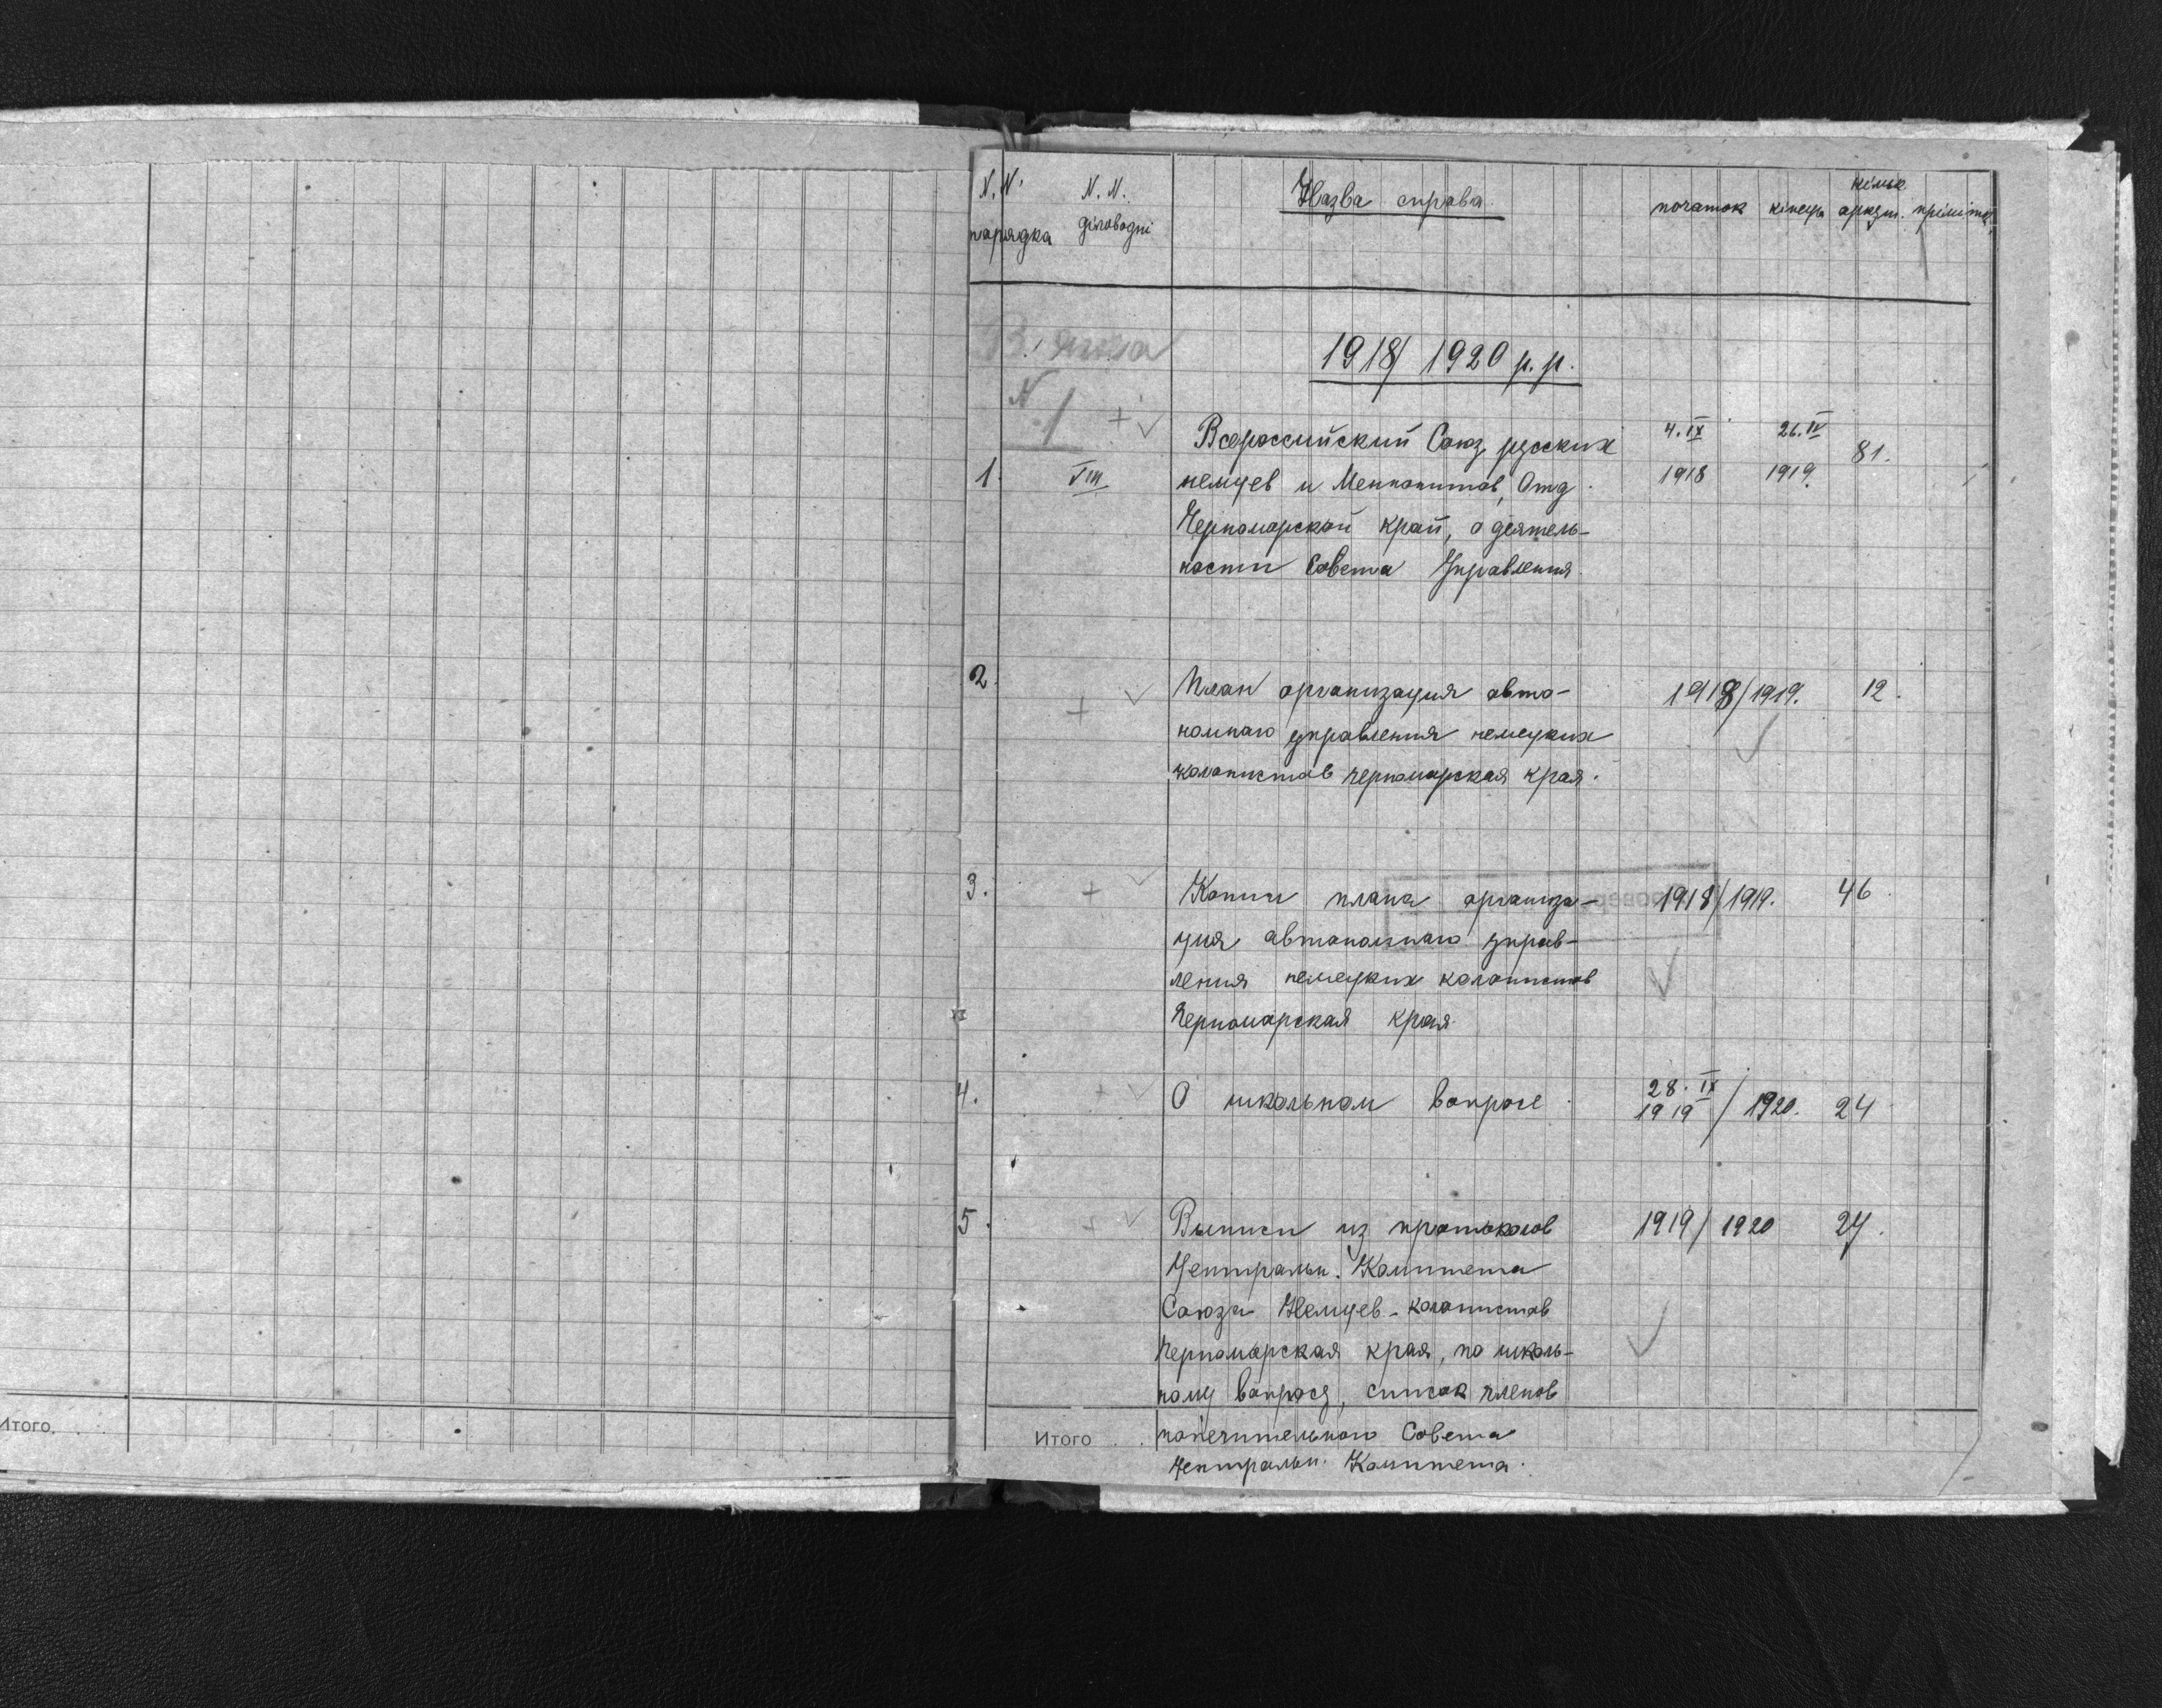 N. N. N. N. Назва справа початок кінець кільк. аркуш. примітка
парядка діловодні
Вязка 1918/1920 р.р.
N 1
Всероссийский Союз русских 4.IX 26.IV
1. VIII немцев и Меннонитов, Отд. 1918 1919. 81.
Черноморской край, о деятель-
ности Совета Управления.
2. План организация авто- 1918/1919. 12.
номнаго управления немецких
колонистов черноморская края.
3. Копии плана организа- 1918/1919. 46
ция автономнаго управ-
ления немецких колонистов
Черноморская края.
4. О школьном вопросе. 28.IX 1919/1920. 24
5. Выписи из протоколов 1919/1920 24.
Центральн. Комитета
Союза Немцев-колонистов
Черноморская края, по школь-
ному вопросу, список членов
Итого . . . попечительного Совета
Центральн. Комитета.
Итого. . . .